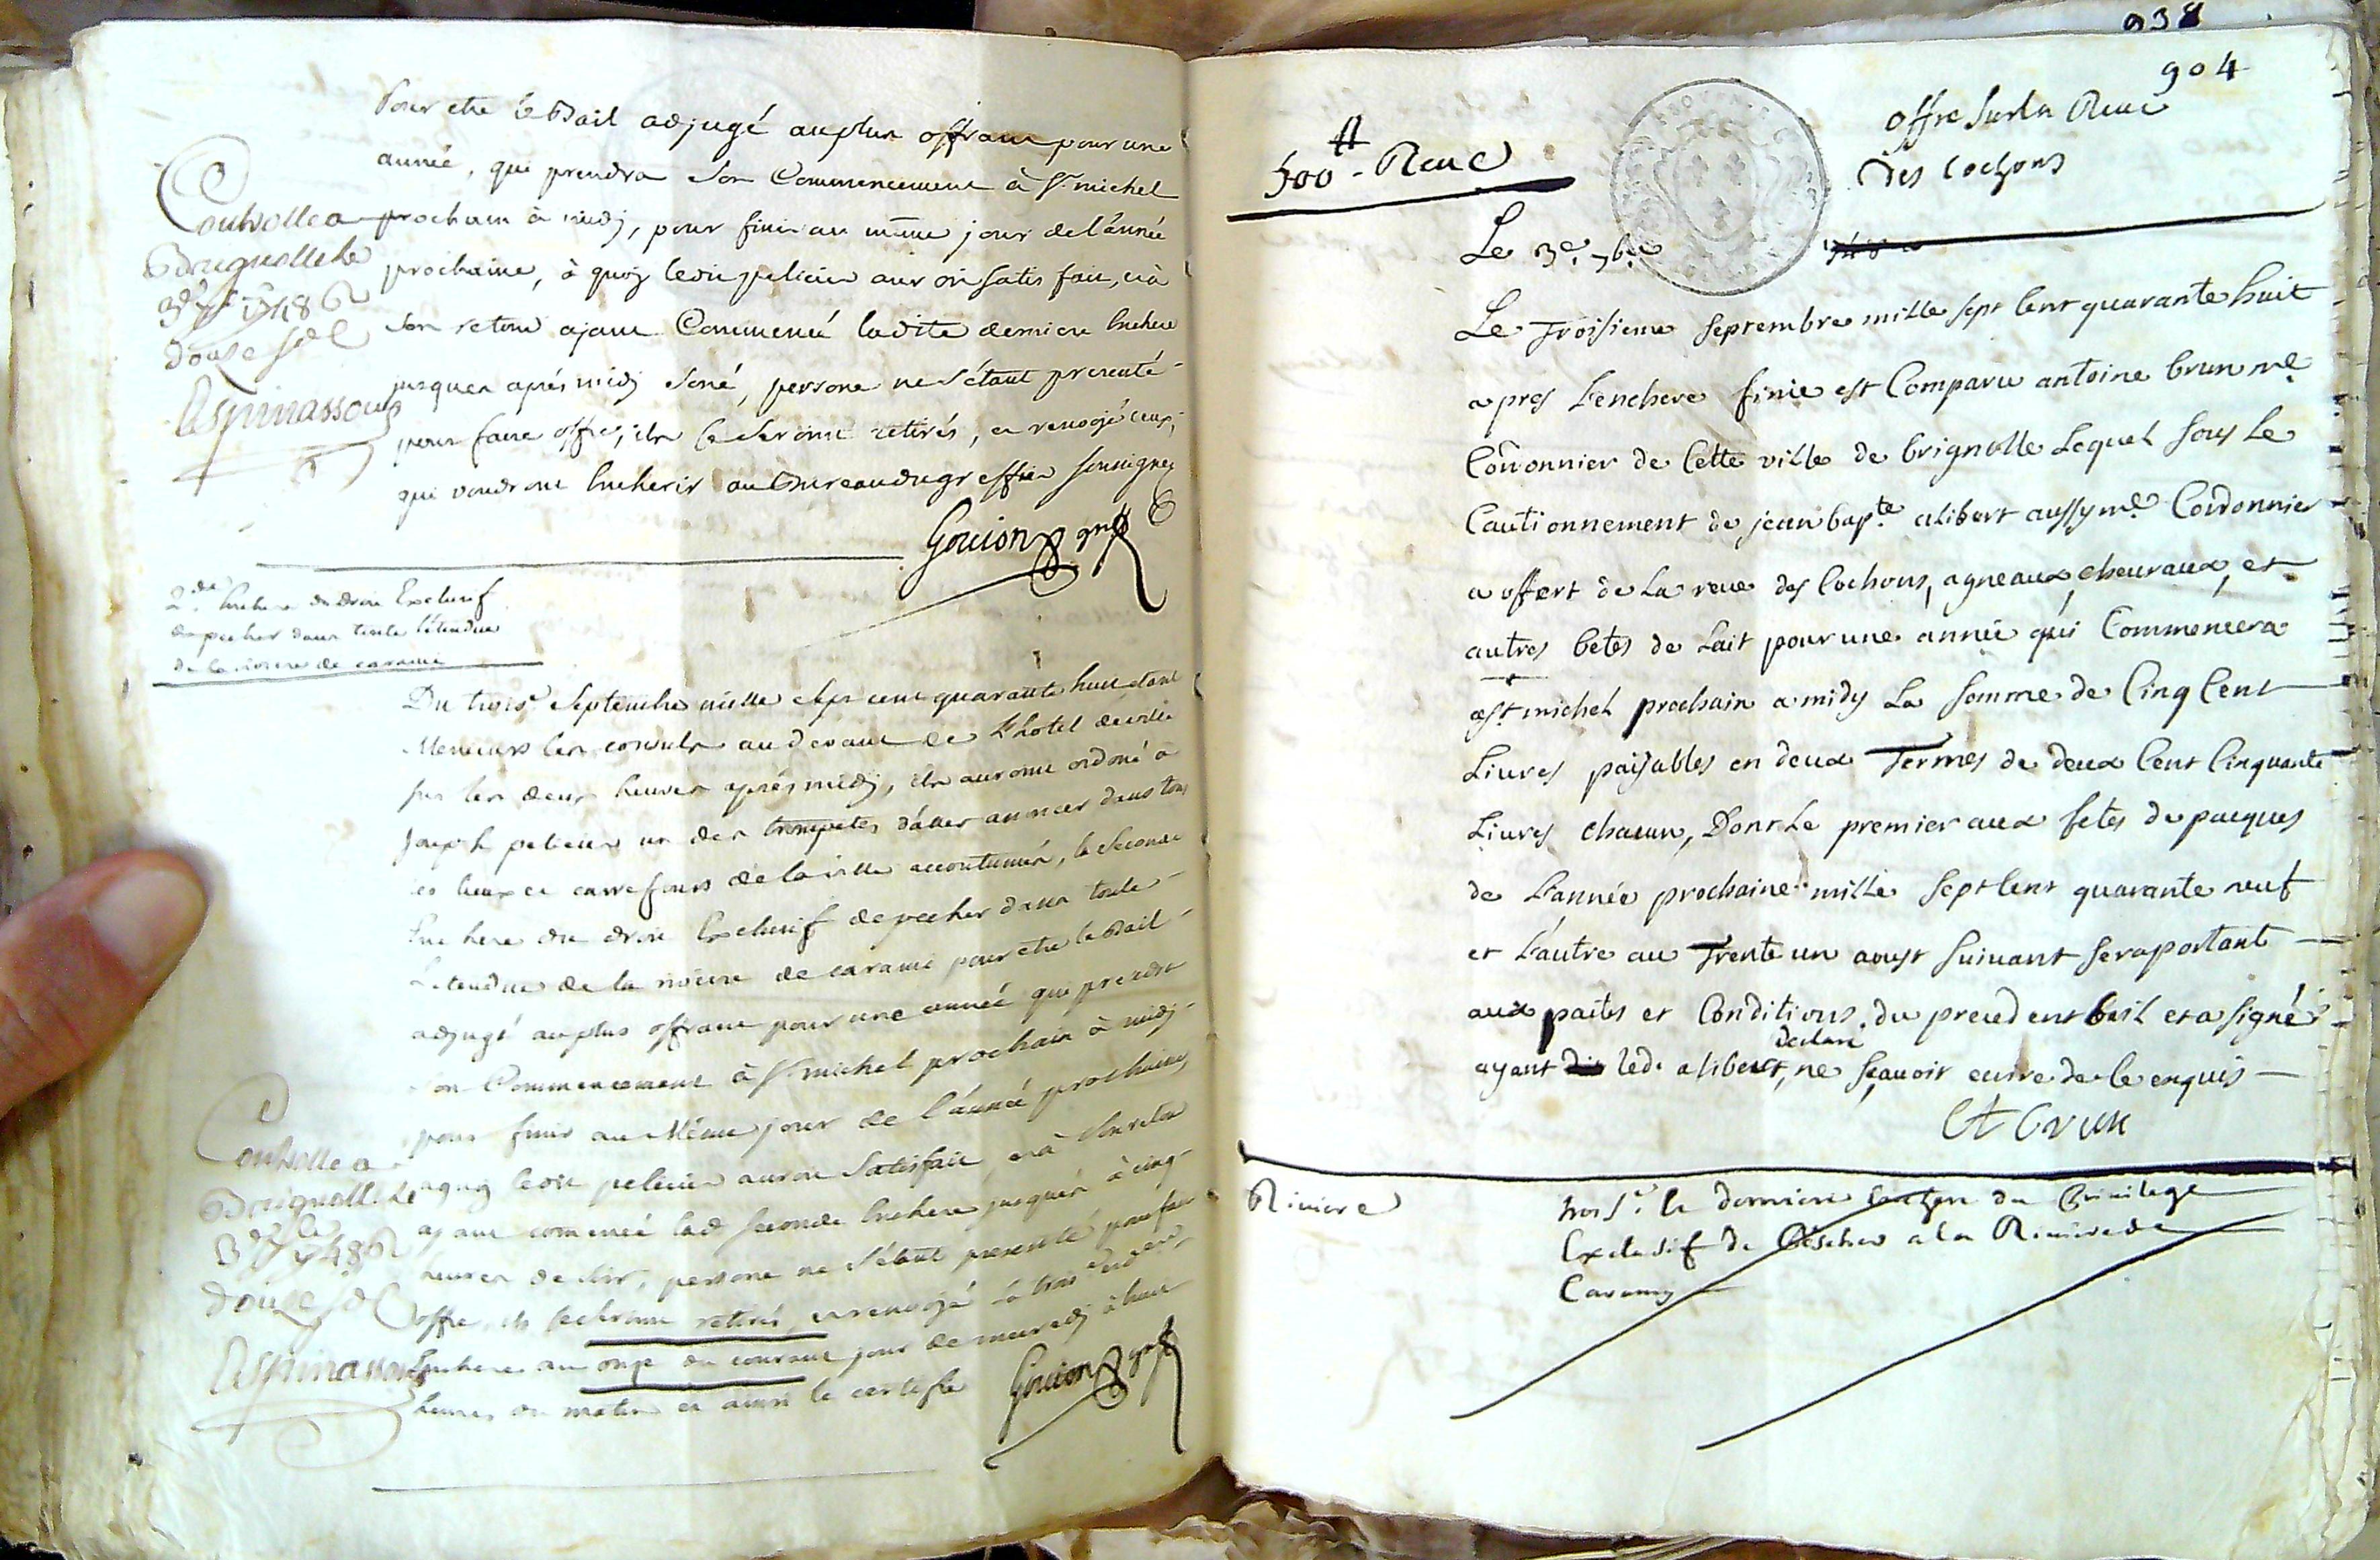 Pour etre le Bail adjugé au plus offrant pour une
année, qui prendra son Commencement à St michel
prochain à midj, pour finir au même jour de l'année
prochaine, à quoy ledit pelicier auroit satisfait, et à
son retour ajant Commencé ladite derniere Enchere
jusques aprés midj soné, persone ne s'étant presenté
pour faire offre, ils se seroint retirés, et renvojé ceux
qui voudront Encherir au Bureau du greffier soussigné
Gouion gref
Controlle a
Brignolle le
3e 7bre 1748 R
douze sols
Espinasson
2de Enchere du droit Exclusif
de pecher dans toute l'étendue
de la riviere de carami
Du trois.e Septembre mille sept cent quarante huit etant
Messieurs les consuls au devant de l'hotel de ville
sur les deux heures aprés midj, ils auroint ordoné à
Joseph pelicier un des trompetes d'aller anoncer dans tous
les lieux et carrefours de la ville accoutumés, la seconde
Enchere du droit Exclusif de pecher dans toute
L'etendue de la riviere de carami pour etre le Bail
adjugé au plus offrant pour une année qui prendra
son Commencement à St michel prochain à midj
pour finir au Méme jour de l'année prochaine
a quoy ledit pelicier auroit satisfait, et à son retour
ajant comencé lad seconde Enchere jusques à cinq
heures de soir, persone ne s'étant presenté pour faire
offre, ils se seroint retirés, et renvojé la trois.e et der.e
Enchere au onze du courant jour de mecredj à huit
heures du matin et ainsi le certifie
Gouion gref
Controlle a
Brignolle le
3e 7bre 1748 R
douze sols
Espinasson
938
904
500 ₶ - Reue
offre Sur la Reue
des cochons
Le 3e. 7bre
Le Troisieme septembre mille sept Cent quarante huit
apres L'enchere finie est Comparu antoine brun me
Cordonnier de Cette ville de brignolle Lequel sous Le
Cautionnement de jean bapte alibert aussy me Cordonnier
a offert de La reue des Cochons, agneaux, cheuraux, et
autres betes de Lait pour une année qui Commencera
a st michel prochain a midy La somme de Cinq Cent
Liures paijables en deux Termes de deux Cent Cinquante
Liures chacun, Dont Le premier aux fetes de pacques
de L'année prochaine mille sept Cent quarante neuf
et L'autre au Trente un aoust suiuant se raportant
aux pactes et Conditions du precedent bail et a signé
ayant dit led. alibert declaré ne sçauoir ecrire de ce enquis
At brun
Riuiere
trois.e la derniere Enchere du Priuilege
Exclusif de Pescher a la Riuiere de
Caramy